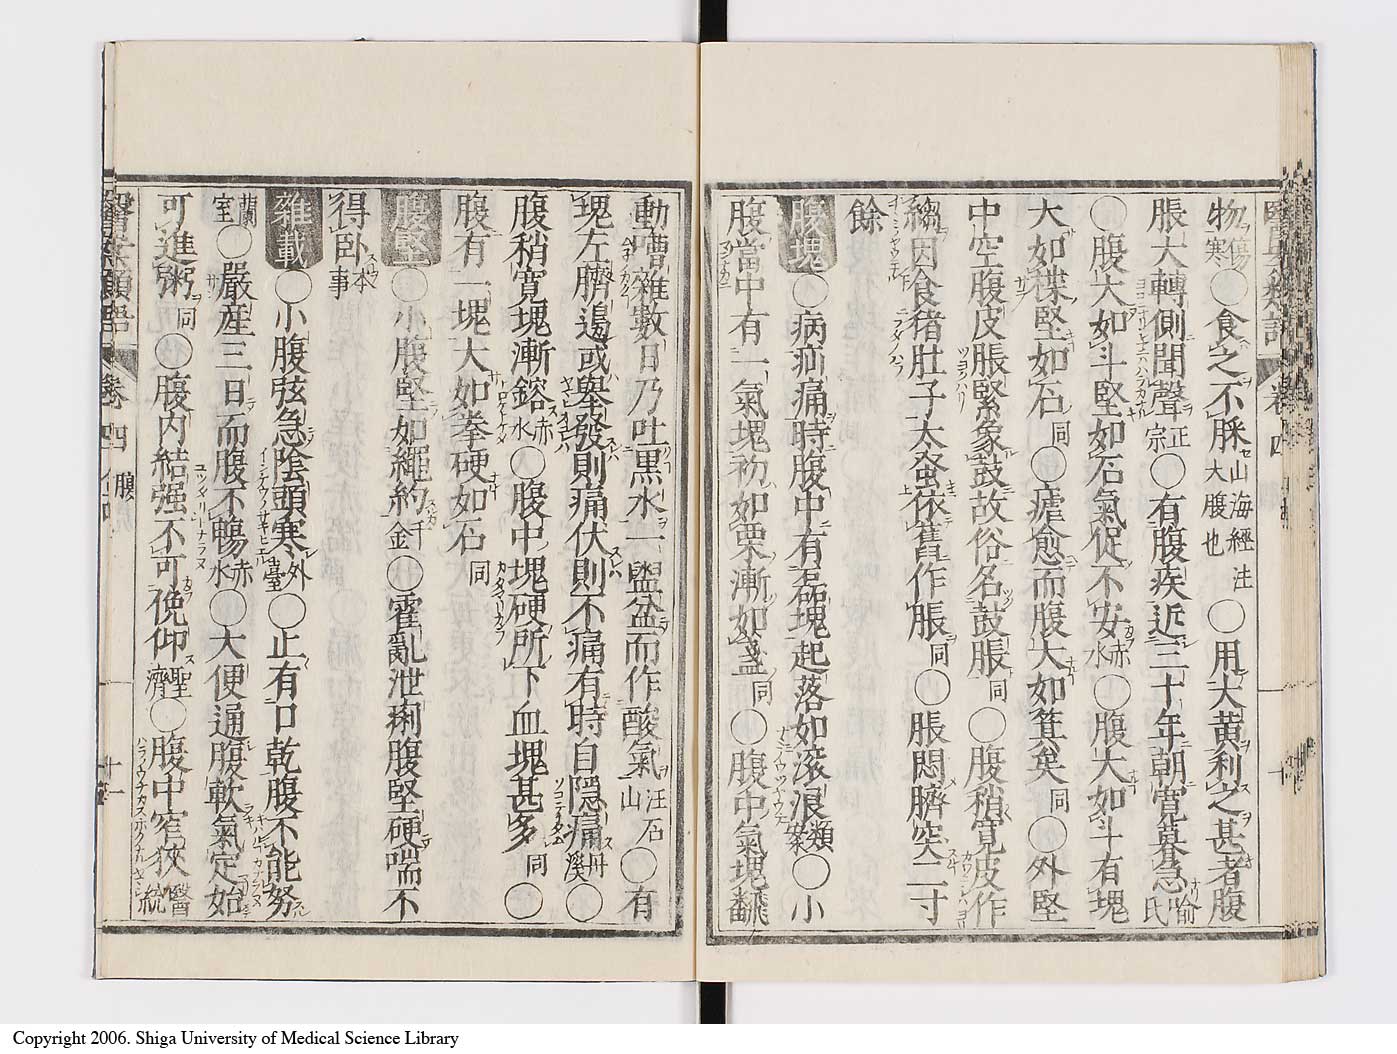 物傷寒○食之不脒山海經注大腹也○用大黄利之甚者腹
脹大轉側聞聲正宗○有腹疾近三十年朝寬暮急喻氏
○腹大如斗堅如石氣促不安赤水○腹大如斗有塊
大如楪堅如石同○瘧愈而腹大如箕矣同○外堅
中空腹皮脹緊象鼓故俗名鼓脹同○腹稍寬皮作
縐因食猪肚子太蚤依舊作脹同○脹悶臍突二寸
餘
腹塊○病疝痛時腹中有磊塊起落如滚浪類案○小
腹當中有一氣塊初如栗漸如盞同○腹中氣塊翻
動嘈雜數日乃吐黒水一盥盆而作酸氣汪石山○有
塊左臍邉或舉發則痛伏則不痛有時自隠痛丹溪○
腹稍寛塊漸鎔赤水○腹中塊硬所下血塊甚多同○
腹有一塊大如拳硬如石同
腹堅○小腹堅如繩約千金○霍亂泄痢腹堅硬喘不
得卧本事
雜載○小腹弦急陰頭寒外臺○止有口乾腹不能努
蘭室○嚴産三日而腹不暢赤水○大便通腹軟氣定始
可進粥同○腹内結强不可俛仰聖濟○腹中窄狹醫統
卷四
腹
十一
Copyright 2006. Shiga University of Medical Science Library